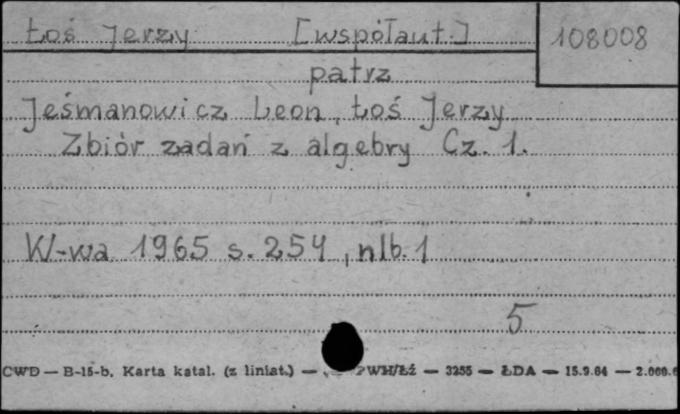 Łoś Jerzy [współaut.] 108008
patrz
Jeśmanowicz Leon, Łoś Jerzy
Zbiór zadań z algebry Cz. 1.
W-wa 1965 s. 254, nlb. 1
5
CWD — B-15-b. Karta katal. (z liniat.) — PWH/Łź — 3255 — ŁDA — 15.9.64 — 2.000.